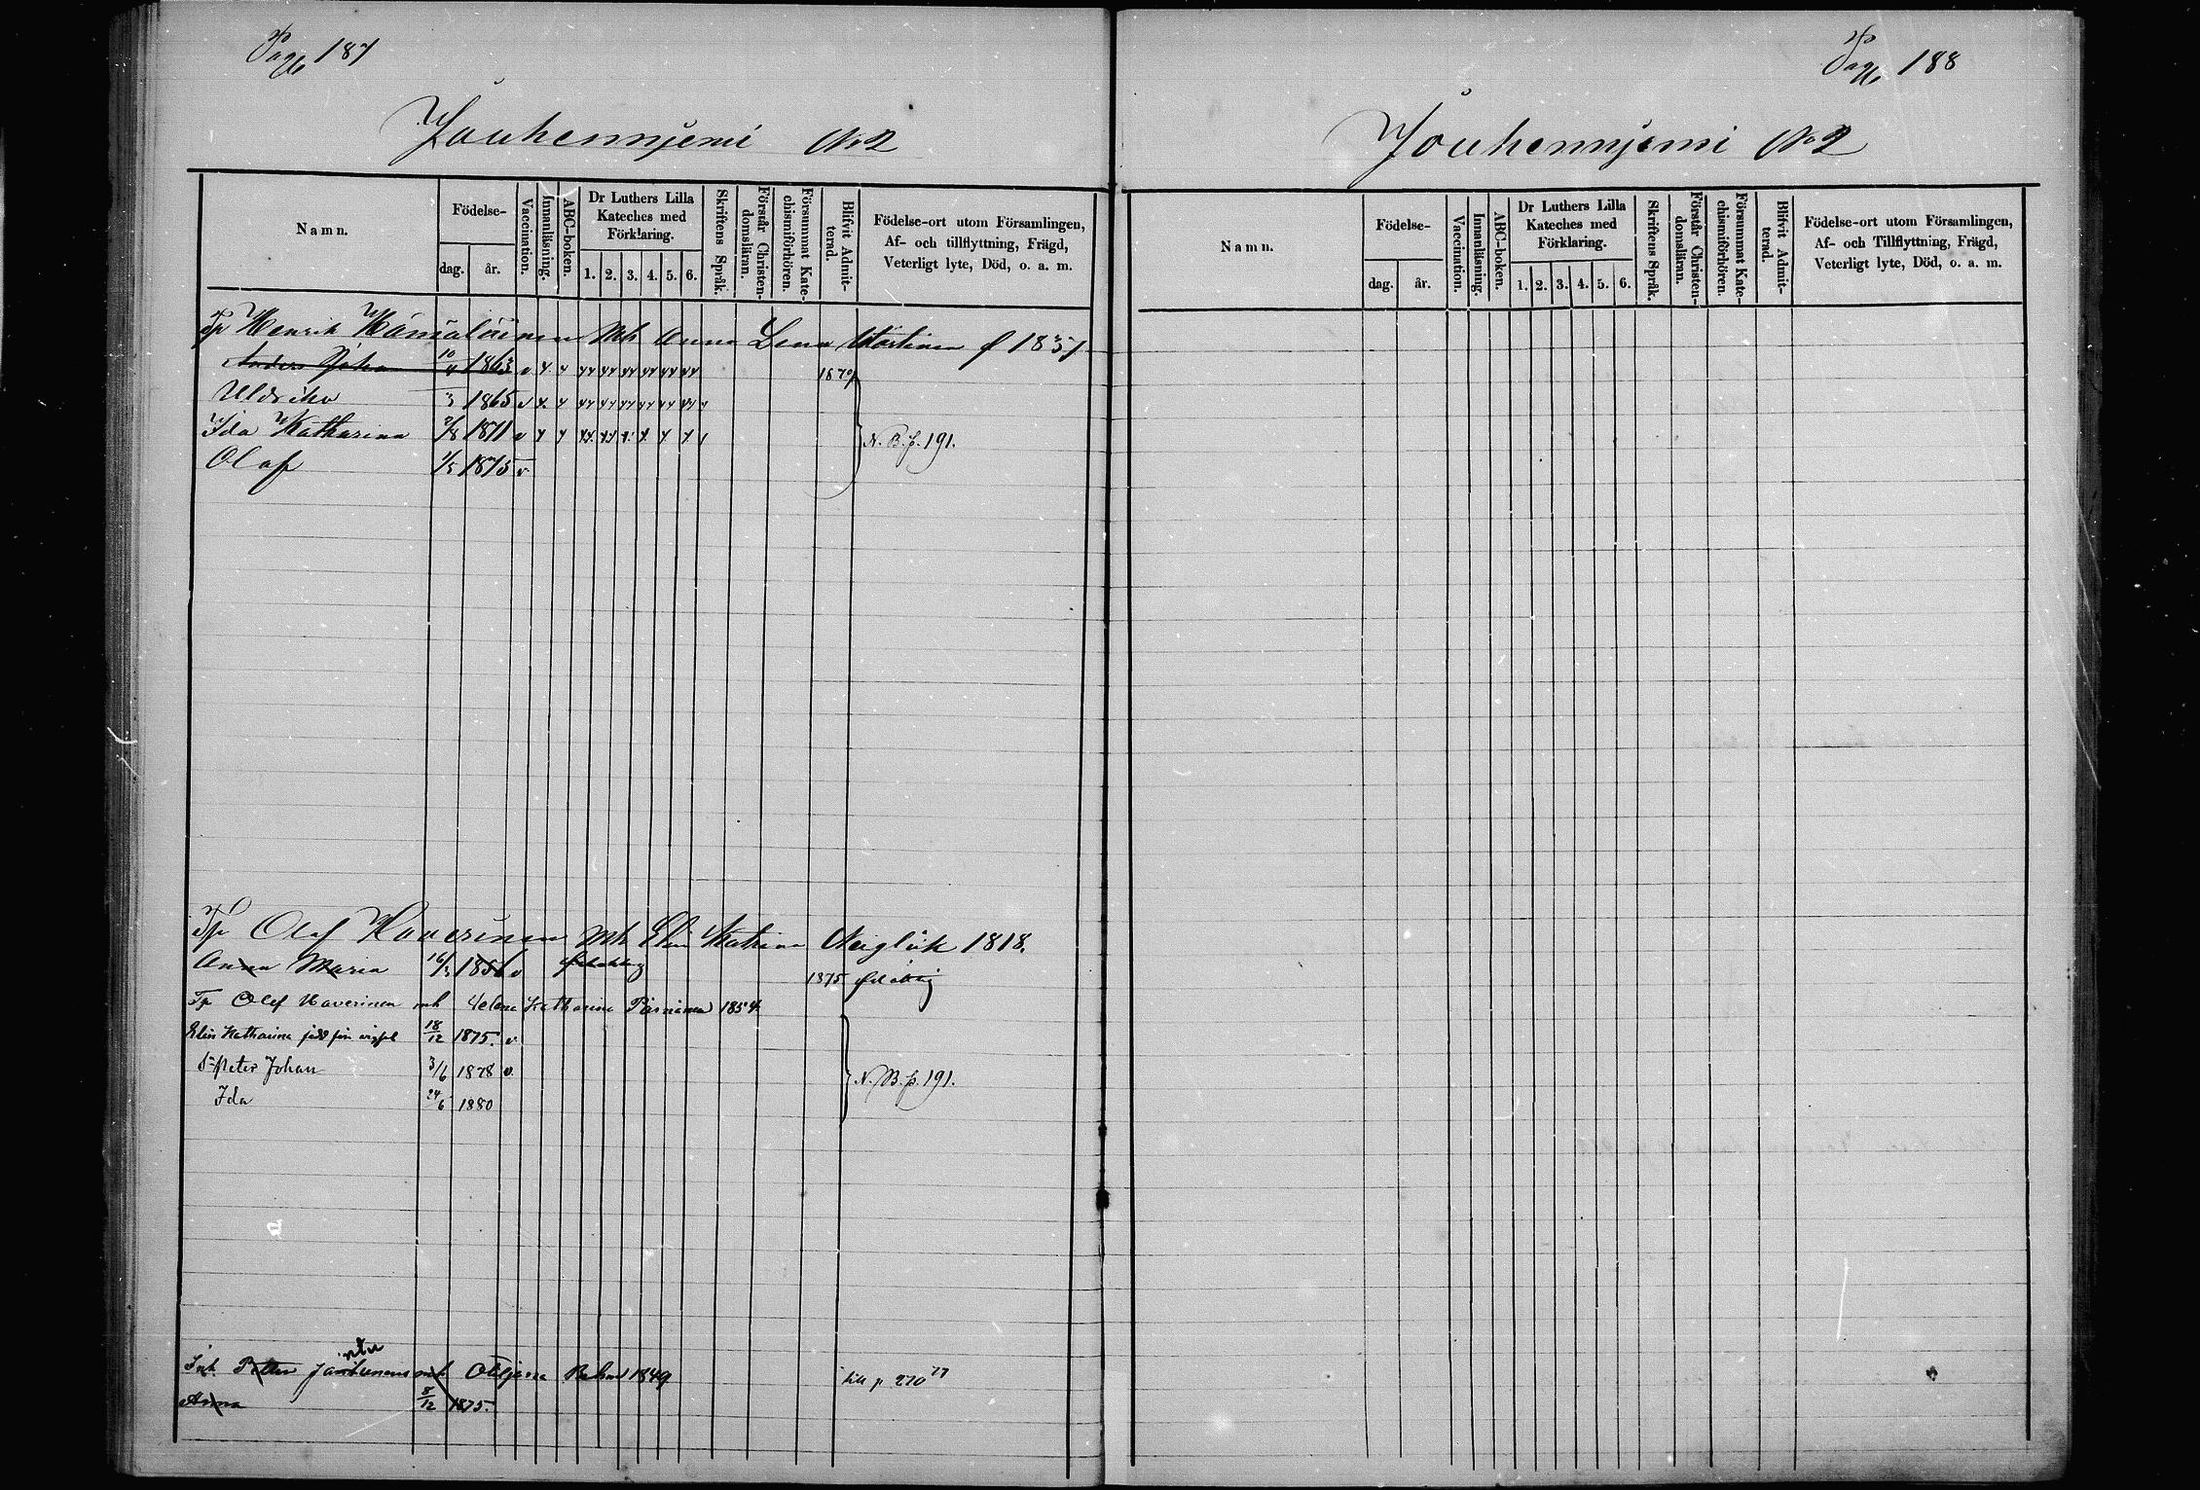 Pag 187
Jouhenniemi No 2
Namn.
Födelse-
dag.
år.
Vaccination.
Innanläsning.
ABC-boken.
Dr Luthers Lilla
Kateches med
Förklaring.
1. 2. 3. 4. 5. 6.
Skriftens Språk.
Förstår Christen-
domsläran.
Försummat Kate-
chismiförhören.
Blifvit Admit-
terad.
Födelse-ort utom Församlingen,
Af- och tillflyttning, Frägd,
Veterligt lyte, Död, o. a. m.
Tp Henrik Hämäläinen Mh Anna Lena Martinen f 1831
Anders Johan 10/4 1863 v 1879
Uldrika 1865 v
Ida Katharina 1871 v N. B. p. 191.
Olof 1/5 1875 v
Tp Olof Haverinen Mh Elin Katrina Neiglik 1818.
Anna Maria 16/3 v 1875
Tp Olof Haverinen mh Helena Katharina Pärnänen 1854
Elin Katharina född 18/12 1875. v
Peter Johan 3/6 1878 v. N. B. p. 191.
Ida 24/6 1880
Petter mh 1849 till p 270 77
Anna 8/12 1875.
Pag 188
Jouhenniemi No 2
Namn.
Födelse-
dag.
år.
Vaccination.
Innanläsning.
ABC-boken.
Dr Luthers Lilla
Kateches med
Förklaring.
1. 2. 3. 4. 5. 6.
Skriftens Språk.
Förstår Christen-
domsläran.
Försummat Kate-
chismiförhören.
Blifvit Admit-
terad.
Födelse-ort utom Församlingen,
Af- och Tillflyttning, Frägd,
Veterligt lyte, Död, o. a. m.